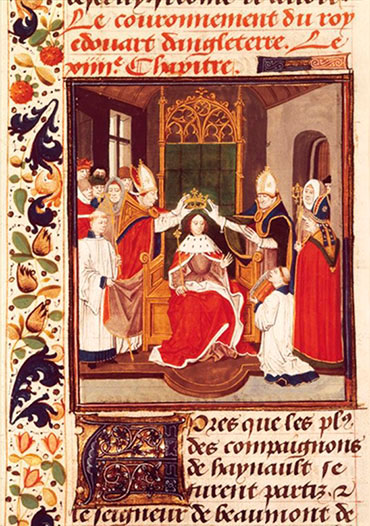 Le couronnement du roy
edouart dangleterre. Le
xiiiie. Chapitre.
Apres que les plꝰ
des compaignons
de haynault se
furent partiz. z
le seigneur de beaumont de